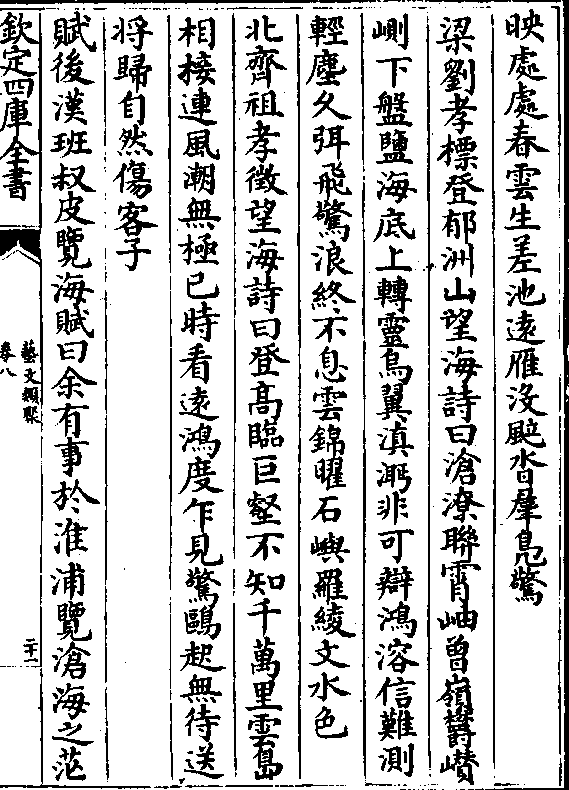 映處處春雲生差池遠雁没颭沓羣鳬驚
梁劉孝標登郁洲山望海詩曰滄潦聯霄岫曾嶺鬱巑
崱下盤鹽海底上轉靈烏翼滇沔非可辯鴻溶信難測
輕塵久弭飛驚浪終不息雲錦曜石嶼羅綾文水色
北齊祖孝徵望海詩曰登髙臨巨壑不知千萬里雲島
相接連風潮無極已時看逺鴻度乍見驚鷗起無待送
将歸自然傷客子
賦後漢班叔皮覽海賦曰余有事於淮浦覽滄海之茫
欽定四庫全書
藝文類聚
卷八
二十一